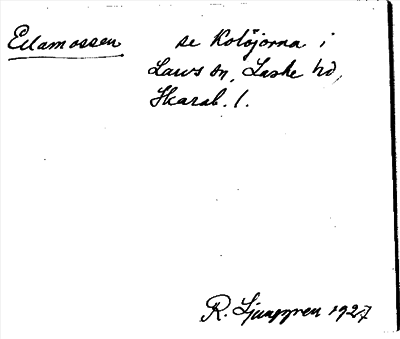 Edamossen se Kolöjorna i
Laws sn, Laske hd,
Skarab. l.
R. Ljunggren 1927